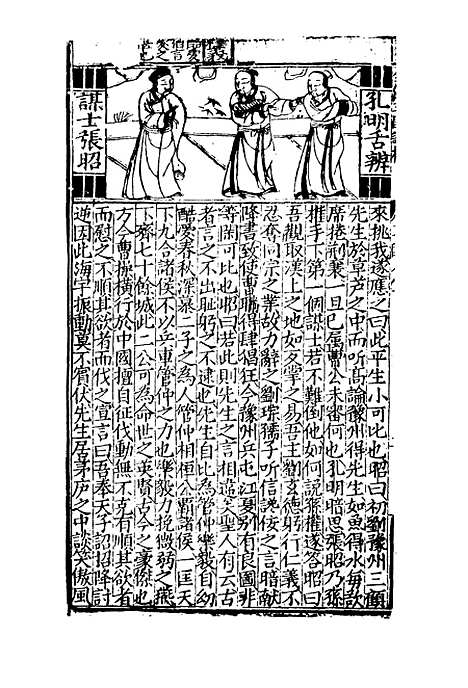 孔明舌辨
謀士張昭
來挑我遂應之曰此平生小可比也昭曰初劉豫州三顧
先生於草芦之中而听高論豫州得先生如魚得水每欲
席捲荆襄一旦已属曹公未審何也孔明暗思張昭乃孫
權手下第一個謀士若不難倒他如何說孫權遂答昭曰
吾觀取漢上之地如反掌之易吾主劉玄德躬行仁義不
忍奪同宗之業故力辭之劉琮孺子听信謟佞之言暗献
降書致使曹瞞得肆猖狂今豫州兵屯江夏别有良圖非
等閑可比也昭曰若此則先生之言相違又聖人有云古
者言之不出耻躬之不逮也先生自比為管仲樂毅自幼
酷愛春秋深慕二子之為人管仲相桓公覇諸侯一匡天
下九合諸侯不以兵車管仲之力也樂毅力挽微弱之燕
下齊七十餘城此二公可為命世之英賢古今之豪傑也
方今曹操横行於中國擅自征伐動無不克有順其欲者
而慰之不順其欲者而伐之宣言曰吾奉天子詔招降討
逆因此海宇振動莫不賓伏先生居茅庐之中談笑傲風